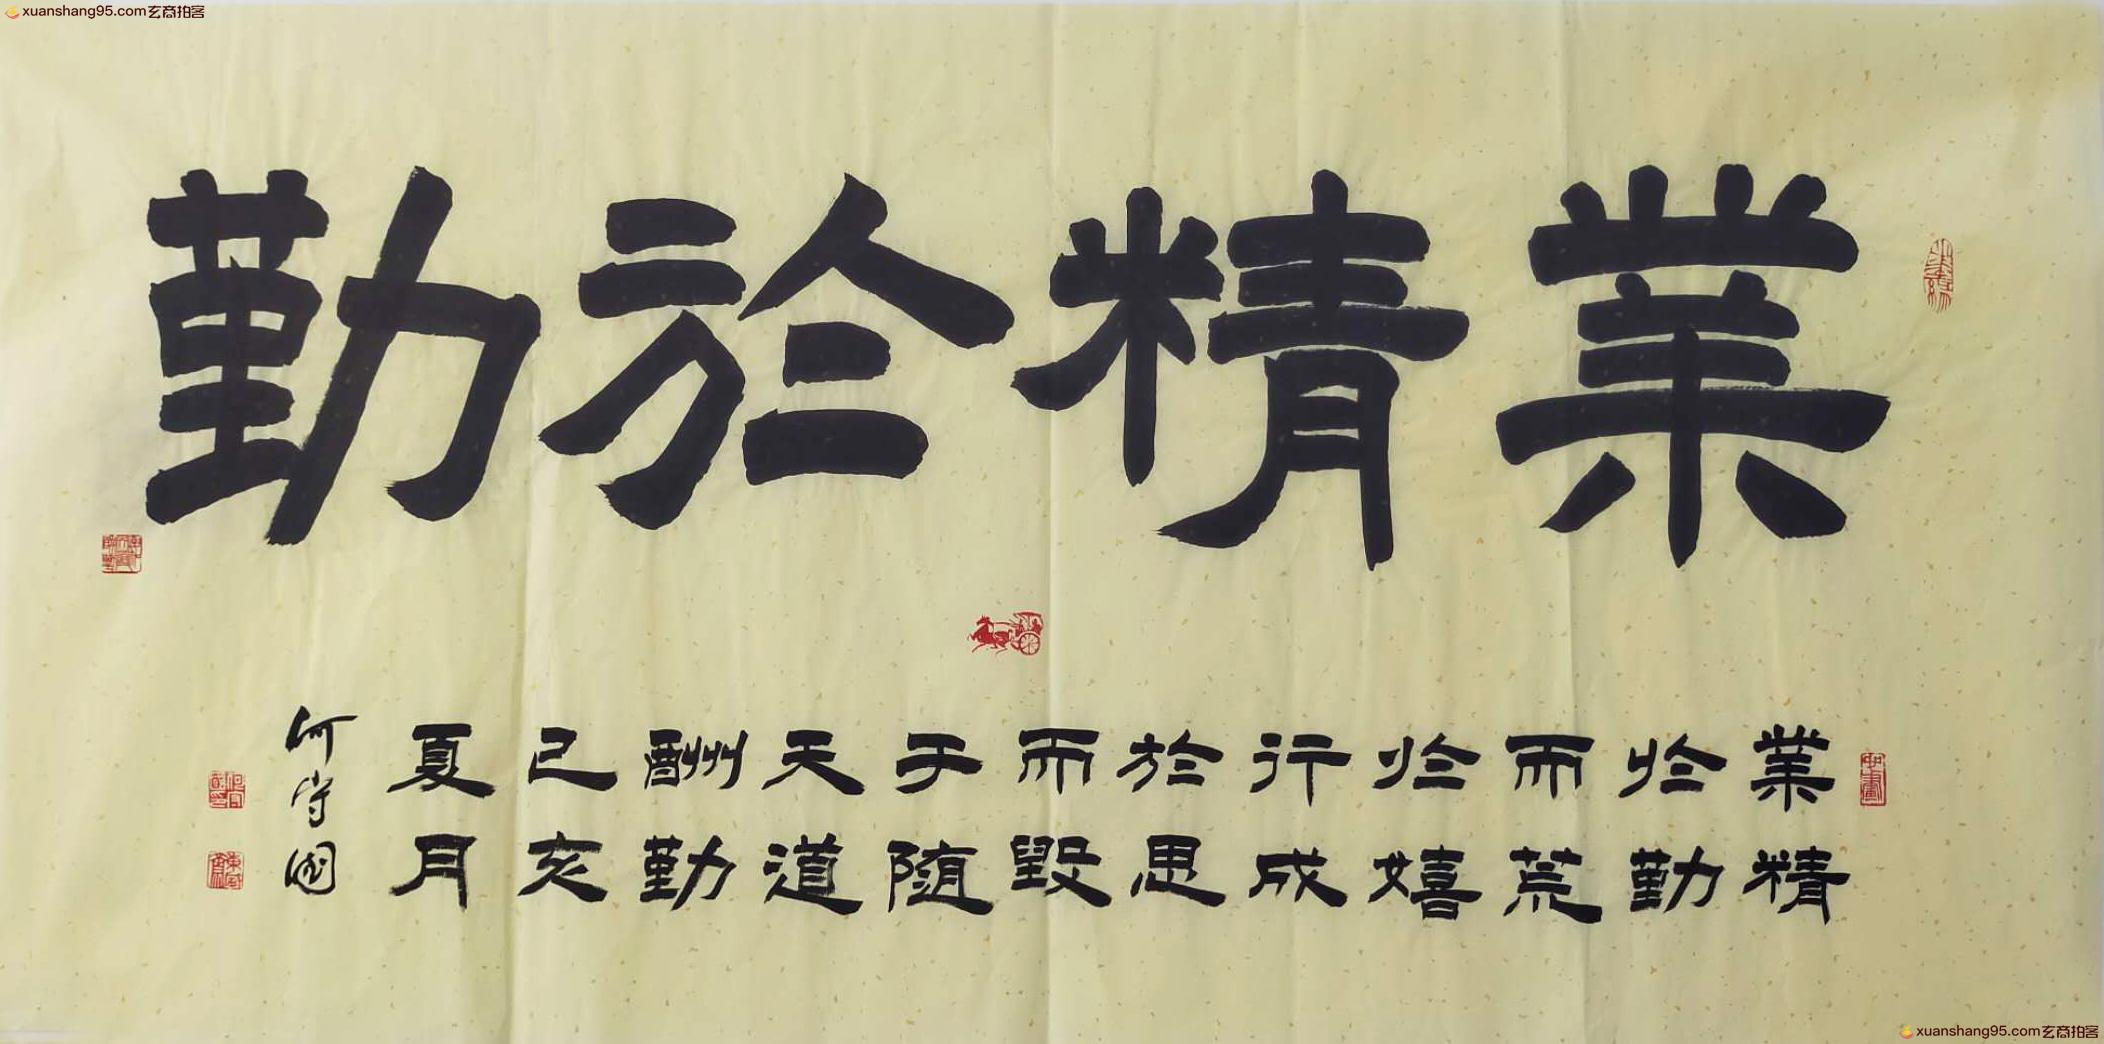 xuanshang95.com玄商拍客
業精於勤
業精
於勤
而荒
於嬉
行成
於思
而毀
于随
天道
酬勤
己亥
夏月
何守國
xuanshang95.com玄商拍客